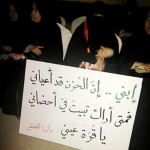 إبني .. إن الحزن قد أعياني
فمتى أراك تبيت في أحضاني
يا قرة عيني
والدة المعتقل